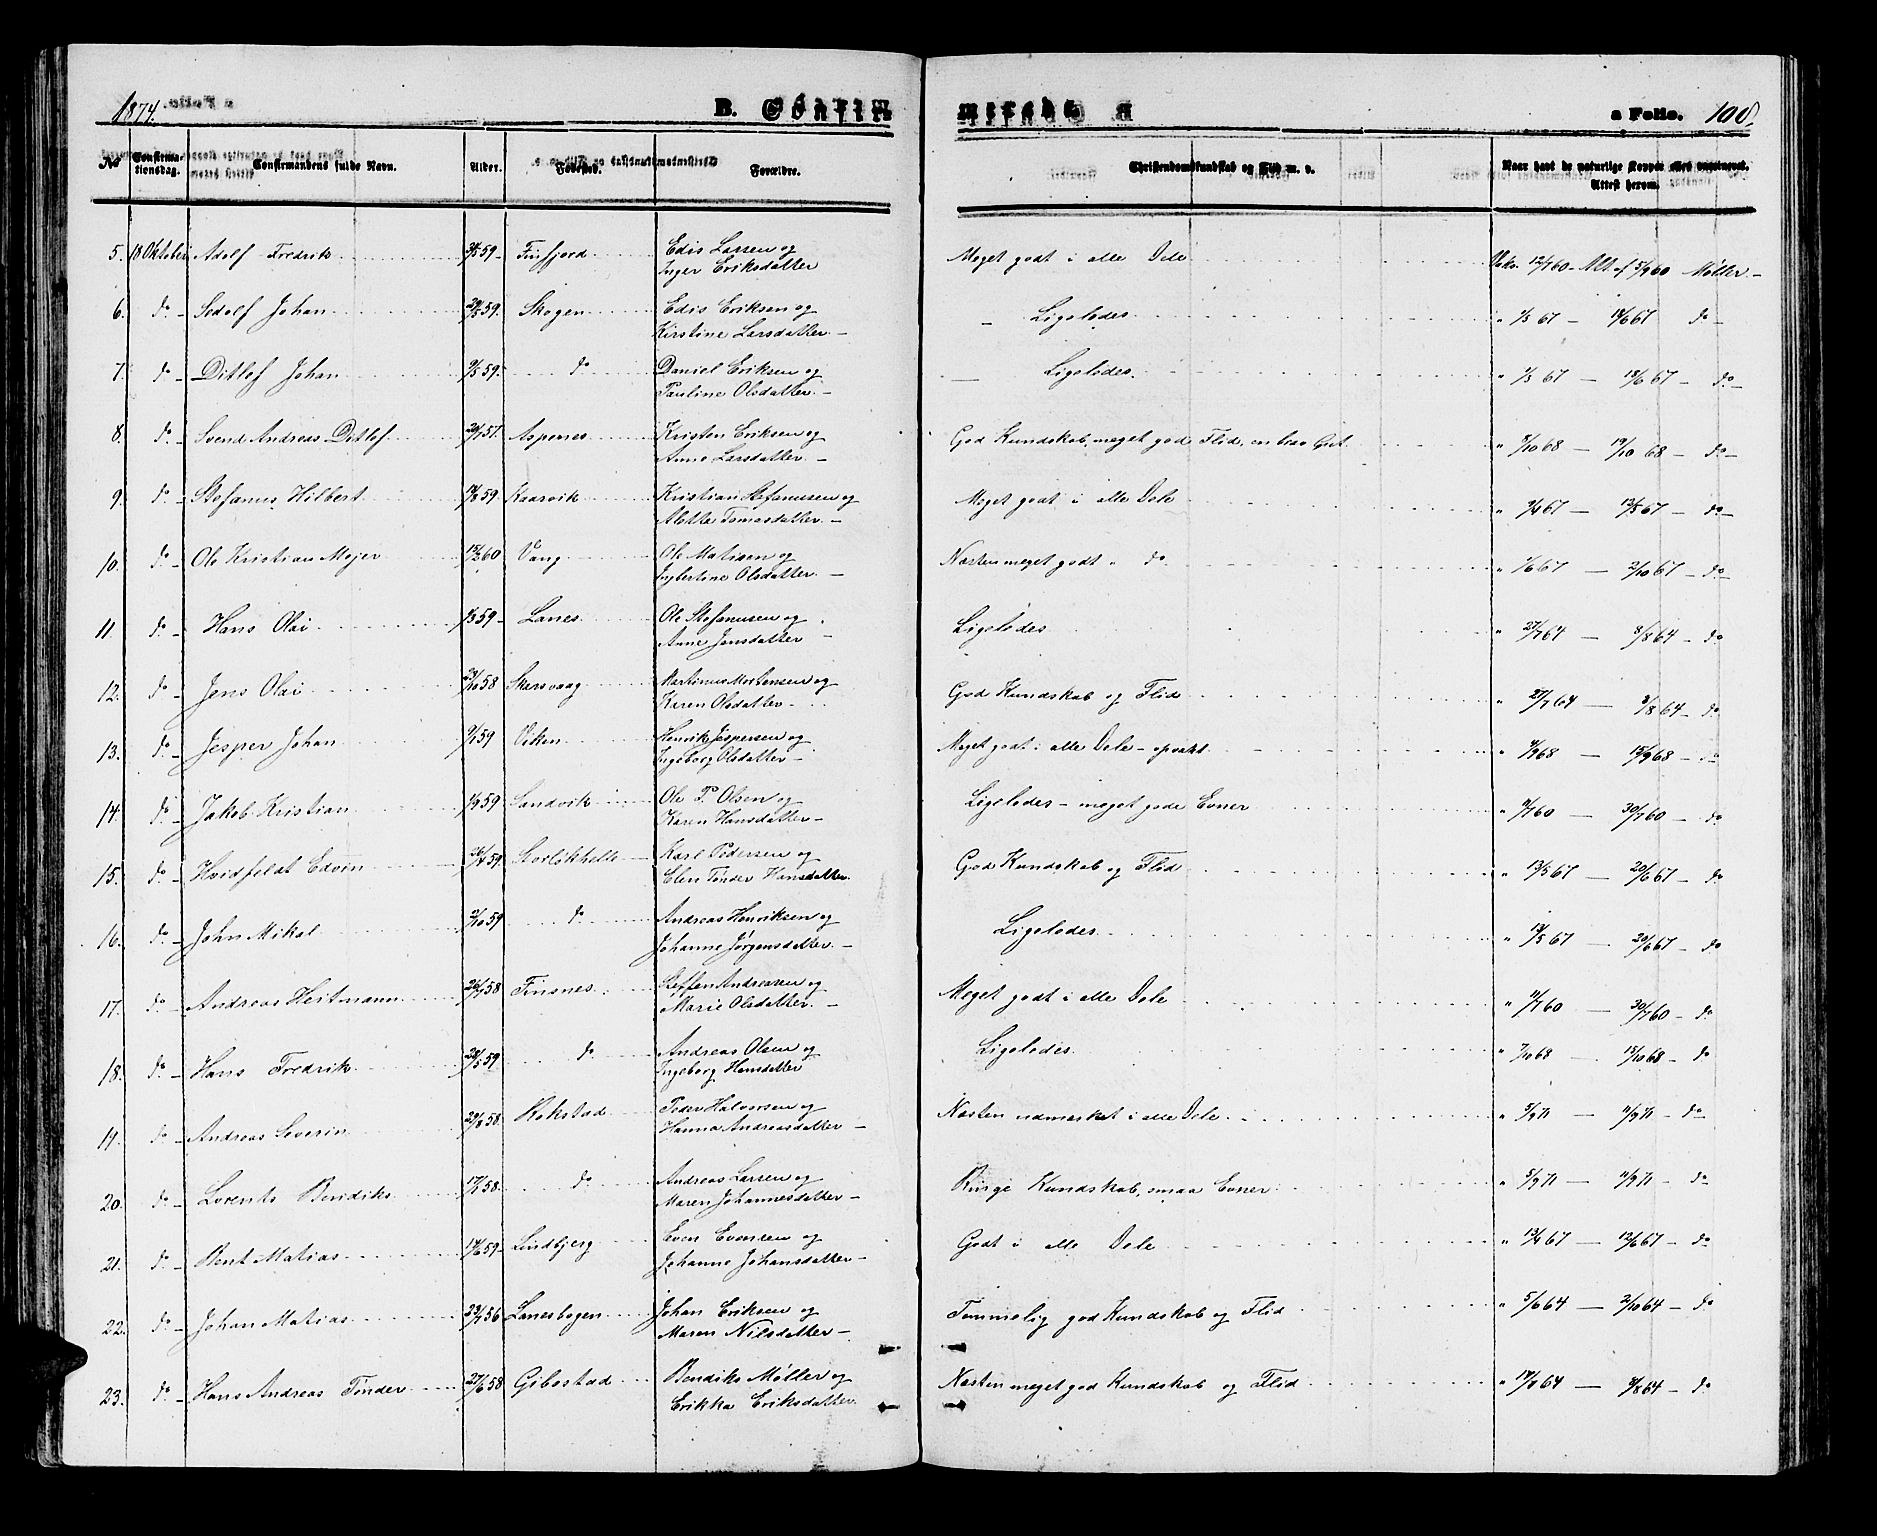 1874.
B. Confirmerede a Folio. 108.
No Confirmationsdag. Confirmandens fulde Navn. Alder. Fødested. Forældre. Christendomskundskab og Flid m. v. Naar havt de naturlige Kopper eller vaccineret. Attest herom.
5. 18 Oktober Adolf Fredrik 59 Finfjord Edis Larsen og Meget godt i alle Dele Vak. 12/7 60 - Møller -
Inger Eriksdatter
6. do - Sedolf Johan 59. Skogen Edis Eriksen og - Ligeledes " 1/5 67 - 18/6 67 do -
Kirstine Larsdatter -
7. do - Ditlef Johan 9/5 59. do Daniel Eriksen og - Ligeledes. " 1/5 67 - 18/6 67 - do -
Pauline Olsdatter. -
8. do - Svend Andreas Ditlef 57. Aspenes Kristen Eriksen og God Kundskab, meget god Flid, en brav Gut. " 8/10 68 - 19/10 68 - do -
Anne Larsdatter. -
9. do - Stefanus Hilbert 59 Kaarvik Kristian Stefanusen og Meget godt i alle Dele 67 - 13/5 67 - do -
Alette Tomasdatter. -
10. do - Ole Kristian Mejer 60 Vang Ole Matisen og Næsten meget godt " do " 1/6 67 - 2/10 67 - do -
Ingbertine Olsdatter. -
11. do - Hans Olai 59 - Lanes Ole Stefanusen og Ligeledes " 27/7 64 - 8/8 64 - do
Anne Jensdatter -
12. do - Jens Olai 58 Skarsvaag Martinus Mortensen og God Kundskab og Flid " 27/7 64 - 8/8 64 - do
Karen Olsdatter -
13. do - Jesper Johan 59 Viken Henrik Jespersen og Meget godt i alle Dele - opvakt " 68 - 15/9 68 - do
Ingeborg Olsdatter -
14. do - Jakob Kristian 59 Sandvik Ole P. Olsen og Ligeledes - meget gode Evner " 9/7 60 - 30/7 60 - do
Karen Hansdatter -
15. do - Hvidfeldt Edvin 59. Karl Pedersen og God Kundskab og Flid " 13/5 67 - 20/6 67 - do
Elen Tønder Hansdatter.
16. do - John Mikal 2/10 59 do Andreas Henriksen og Ligeledes " 13/5 67 - 20/6 67 - do
Johanne Jørgensdatter. -
17. do - Andreas Heitmann 58 Finsnes Steffen Andreasen og Meget godt i alle Dele " 11/7 60 30/7 60 - do
Marie Olsdatter. -
18. do - Hans Fredrik 59 do Andreas Olsen og Ligeledes " 7/10 68 - 15/10 68 - do
Ingeborg Hansdatter
19. do - Andreas Severin 58. Rokstad Peder Halvorsen og Næsten udmærket i alle Dele " 5/9 71 - 11/9 71 - do
Hanna Andreasdatter -
20. do - Lorents Bendiks 58. do Andreas Larsen og Ringe Kundskab, smaa Evner " 5/9 71 - 11/9 71 - do
Maren Johannesdatter -
21. do - Bent Matias 59 - Lindbjerg Even Evensen og Godt i alle Dele " 67 - 12/6 67 - do
Johanne Johansdatter -
22. do - Johan Matias 23/7 56 Lanesbogen Johan Eriksen og Temmelig god Kundskab og Flid " 5/6 64 - 2/10 64 - do
Maren Nilsdatter -
23. do - Hans Andreas Tønder 27/6 58 Gibostad Bendiks Møller og Næsten meget god Kundskab og Flid " 64 - 64 - do
Erikka Eriksdatter